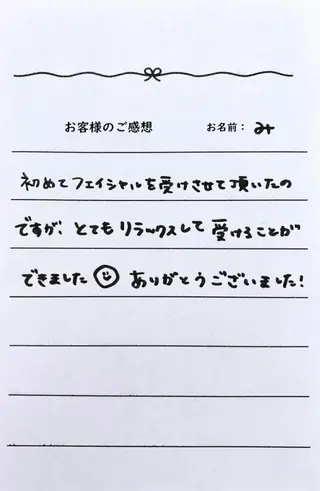 お客様のご感想 お名前： み
初めてフェイシャルを受けさせて頂いたの
ですが、とてもリラックスして受けることが
できました☺ ありがとうございました！